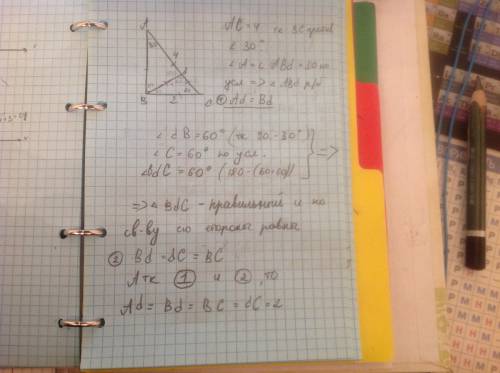 A
30
4
d
B
2
C
AC = 4 тк BC против
∠ 30°
∠A = ∠ABd = 30 по
усл => ∠ABd р/б
① Ad = Bd
∠dB = 60° (тк 90-30°)
∠C = 60° по усл. } =>
∠BdC = 60° (180-(60+60))
=> ∠BdC - правильний и по
св-ву его стороны равны
② Bd = dC = BC
А тк ① и ②, то
Ad = Bd = BC = dC = 2